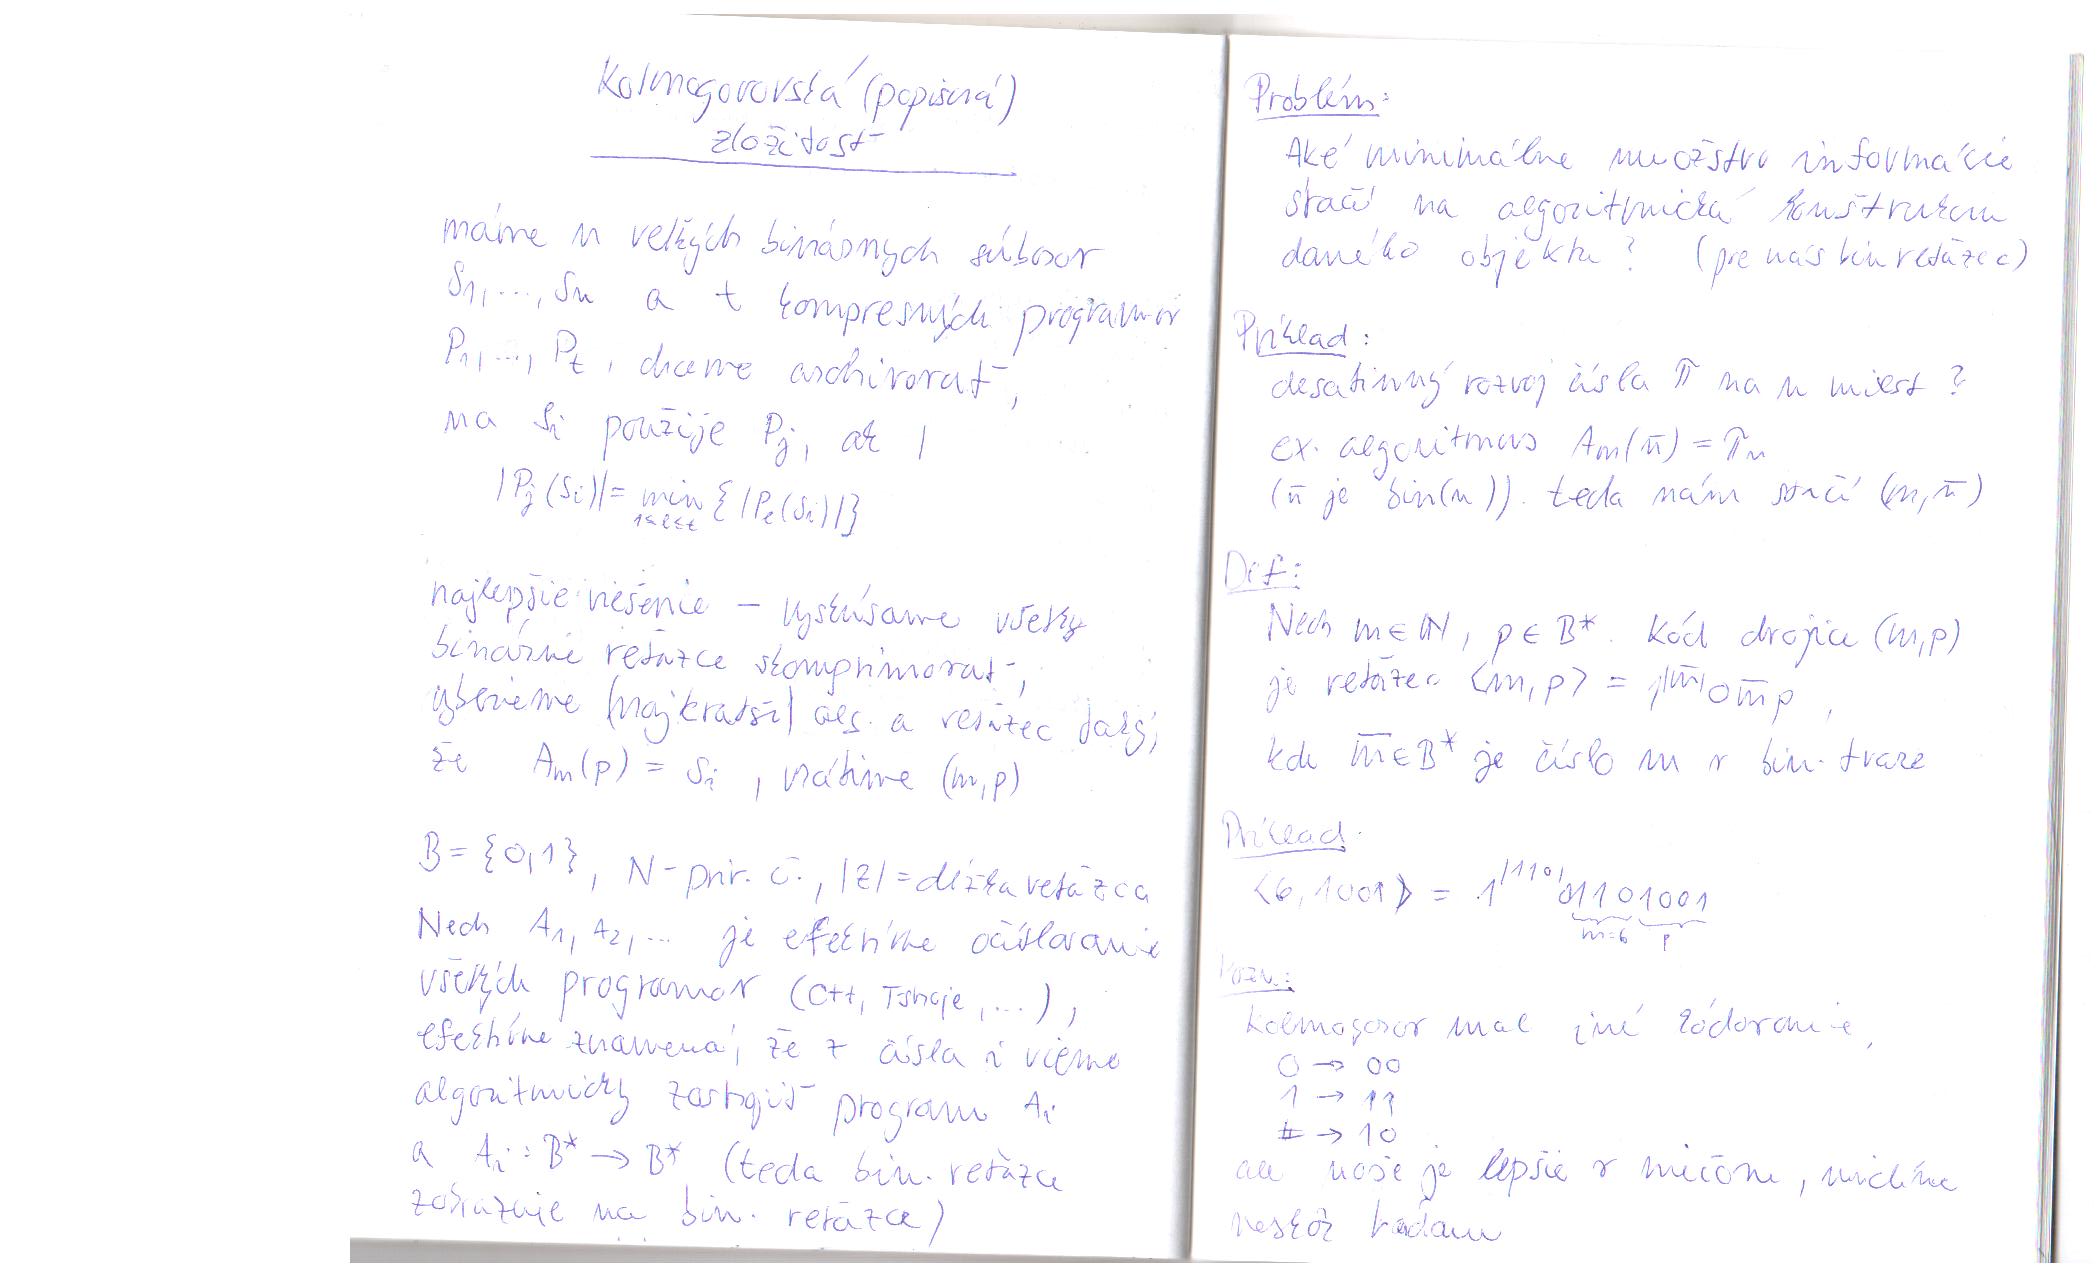 Kolmogorovská (popisná)
zložitosť
máme n veľkých binárnych súborov
S1, ..., Sn a t kompresných programov
P1, ..., Pt, chceme archivovať,
na Si použije Pj, ak
|Pj(Si)| = min {|Pl(Si)|}
1≤l≤t
najlepšie riešenie – vyskúšame všetky
binárne reťazce skomprimovať,
vyberieme (najkratší) alg. a reťazec taký,
že Am(p) = Si, vrátime (m,p)
B = {0,1}, N - prir. č., |z| = dĺžka reťazca
Nech A1, A2, ... je efektívne očíslovanie
všetkých programov (C++, T stroje, ...),
efektívne znamená, že z čísla i vieme
algoritmicky zostrojiť program Ai
a Ai: B* → B* (teda bin. reťazce
zobrazuje na bin. reťazce)
Problém:
Aké minimálne množstvo informácie
stačí na algoritmickú konštrukciu
daného objektu? (pre nás bin reťazec)
Príklad:
desatinný rozvoj čísla π na n miest?
ex. algoritmus Am(n̄) = πn
(n̄ je bin(n)). teda nám stačí (m,n̄)
Def:
Nech m∈N, p∈B*. Kód dvojice (m,p)
je reťazec <m,p> = 1^|m̄|0m̄p,
kde m̄∈B* je číslo m v bin. tvare
Príklad:
<6,1001> = 1^|110|01101001
m=6 p
Pozn.:
Kolmogorov mal iné kódovanie,
0 → 00
1 → 11
# → 10
ale naše je lepšie v niečom,
neskôr